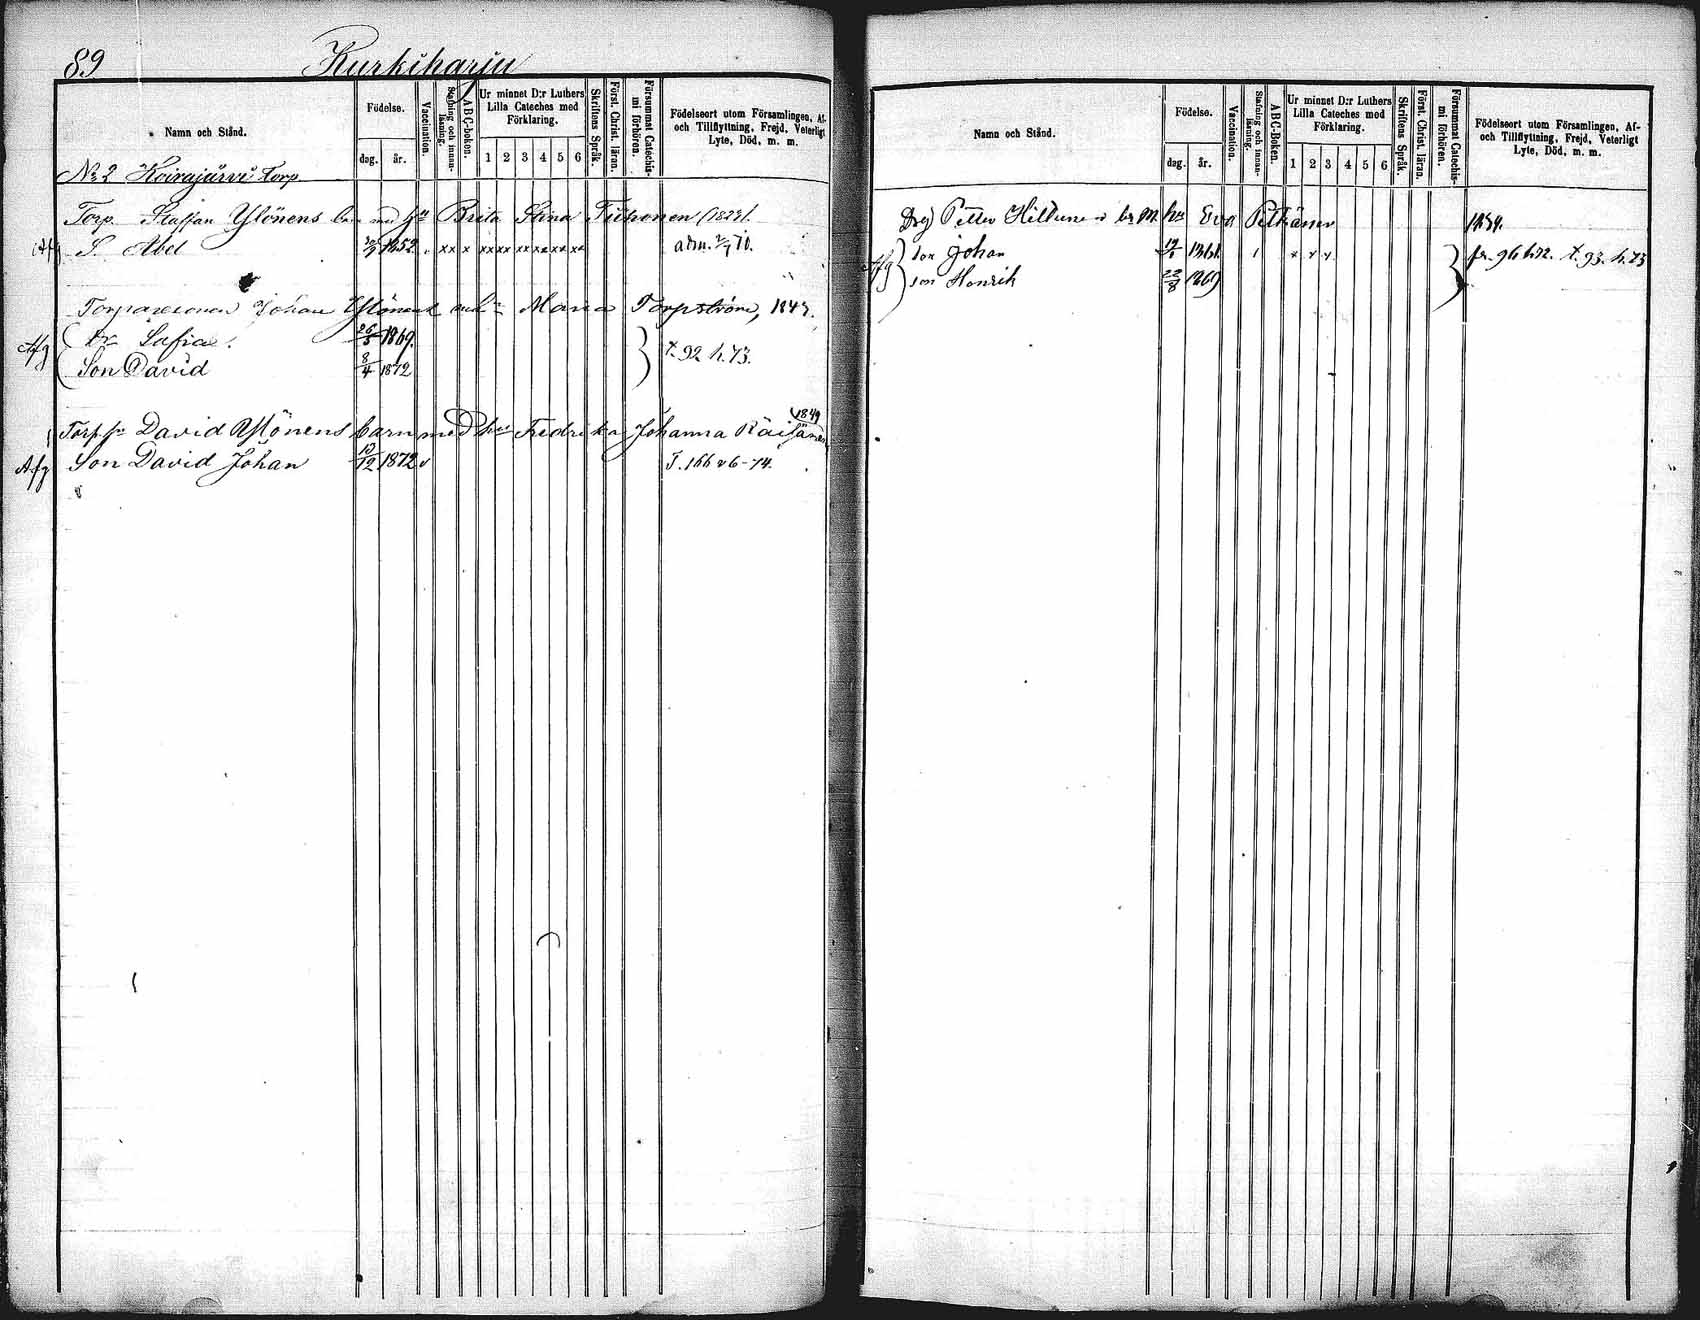 89 Kurkiharju
Namn och Stånd.
Födelse.
dag. år.
Vaccination.
Stafning och innan-läsning.
ABC-boken.
Ur minnet D:r Luthers
Lilla Cateches med
Förklaring.
1 2 3 4 5 6
Skriftens Språk.
Först. Christ. läran.
Försummat Catechis-
mi förhören.
Födelseort utom Församlingen, Af-
och Tillflyttning, Frejd, Veterligt
Lyte, Död, m. m.
No 2 Koirajärvi torp
Torp. Staffan Ylönens med hu Brita Stina Tiihonen
Afg S. Abel 1852 x x x x x x x x x x x x x adm. 70.
Torparesonen Johan Ylönens Maria Torpström, 1843.
Afg dr Sofia 26/5 1869.
Son David 8/4 1872 t. 92 h. 73.
Torp. sn David Ylönens barn med hu Fredrika Johanna Räisänen 1849
Afg Son David Johan 13/12 1872 v T. 166 v 6-74.
Namn och Stånd.
Födelse.
dag. år.
Vaccination.
Stafning och innan-läsning.
ABC-Boken.
Ur minnet D:r Luthers
Lilla Cateches med
Förklaring.
1 2 3 4 5 6
Skriftens Språk.
Först. Christ. läran.
Försummat Catechis-
mi förhören.
Födelseort utom Församlingen, Af-
och Tillflyttning, Frejd, Veterligt
Lyte, Död, m. m.
Drg Petter Hiltunens br M. hu Eva Pitkänen 1834.
Afg son Johan 1861 x x x fr. 96 h 72. t. 93. h. 73
son Henrik 22/8 1869